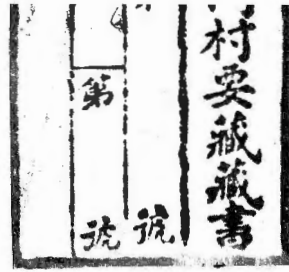 村要藏藏書
號
第 號